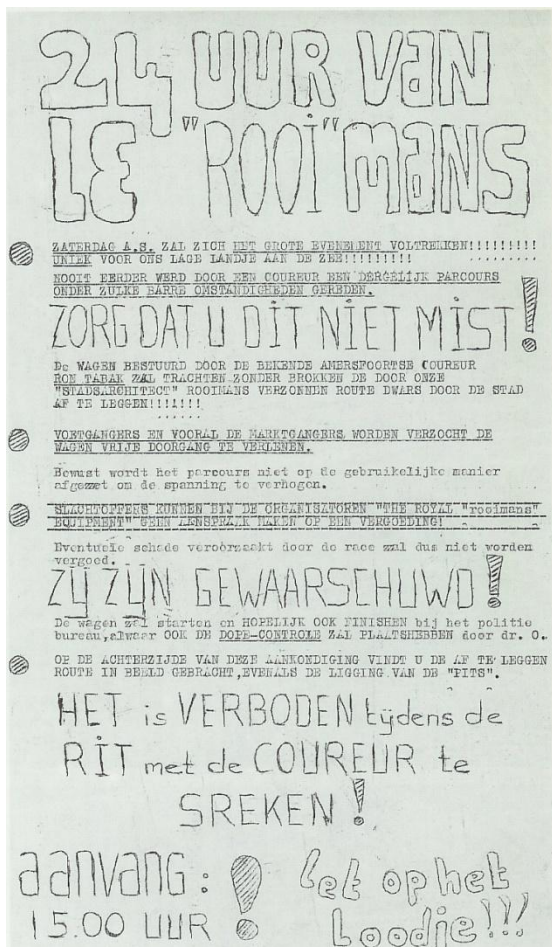 24 UUR VAN
LE "ROOI"MANS
ZATERDAG A.S. ZAL ZICH HET GROTE EVENEMENT VOLTREKKEN!!!!!!!!!
UNIEK VOOR ONS LAGE LANDJE AAN DE ZEE!!!!!!!!!!
NOOIT EERDER WERD DOOR EEN COUREUR EEN DERGELIJK PARCOURS
ONDER ZULKE BARRE OMSTANDIGHEDEN GEREDEN.
ZORG DAT U DIT NIET MIST!
De WAGEN BESTUURD DOOR DE BEKENDE AMERSFOORTSE COUREUR
RON TABAK ZAL TRACHTEN ZONDER BROKKEN DE DOOR ONZE
"STADSARCHITECT" ROOIMANS VERZONNEN ROUTE DWARS DOOR DE STAD
AF TE LEGGEN!!!!!!!
VOETGANGERS EN VOORAL DE MARKTGANGERS WORDEN VERZOCHT DE
WAGEN VRIJE DOORGANG TE VERLENEN.
Bewust wordt het parcours niet op de gebruikelijke manier
afgezet om de spanning te verhogen.
SLACHTOFFERS KUNNEN BIJ DE ORGANISATOREN "THE ROYAL "rooimans"
EQUIPMENT" GEEN AANSPRAAK MAKEN OP EEN VERGOEDING!
Eventuele schade veroorzaakt door de race zal dus niet worden
vergoed.
ZIJ ZIJN GEWAARSCHUWD!
De wagen zal starten en HOPELIJK OOK FINISHEN bij het politie
bureau,alwaar OOK DE DOPE-CONTROLE ZAL PLAATSHEBBEN door dr. O.
OP DE ACHTERZIJDE VAN DEZE AANKONDIGING VINDT U DE AF TE LEGGEN
ROUTE IN BEELD GEBRACHT,EVENALS DE LIGGING VAN DE "PITS".
HET is VERBODEN tijdens de
RIT met de COUREUR te
SREKEN!
aanvang:
15.00 UUR!
Let op het
Loodje!!!